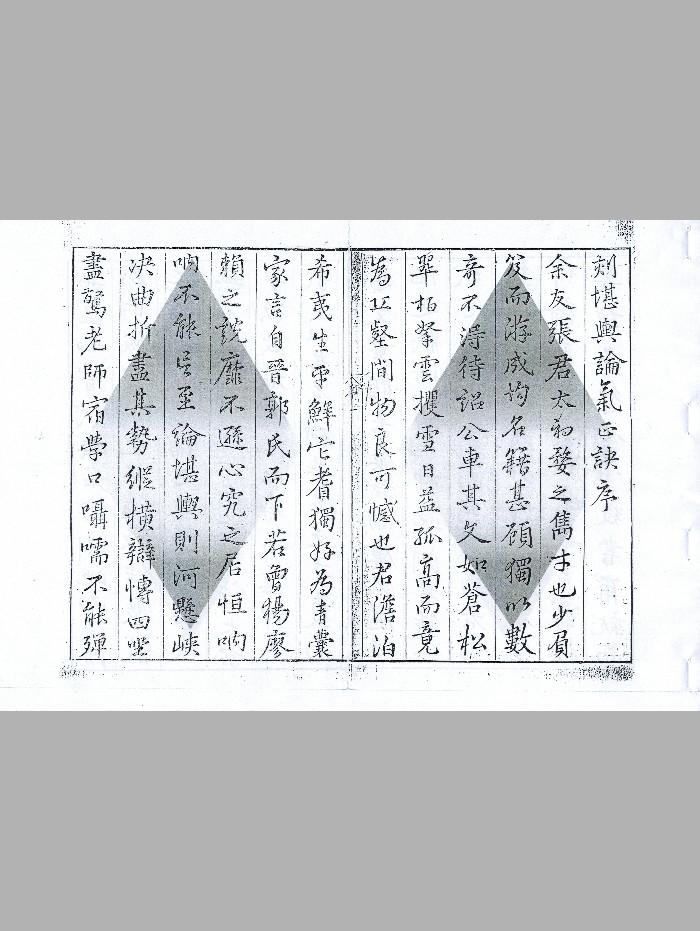 刻堪輿論氣正訣序
余友張君太初婺之雋才也少負
笈而游成均名籍甚顧獨以數
奇不得待詔公車其文如蒼松
翠柏拏雲攫雪日益孤高而竟
為丘壑間物良可憾也君澹泊
希夷生平鮮亡耆獨好為青囊
家言自晉郭氏而下若曾楊廖
賴之說靡不遜心究之居恒呐
呐不能吐至論堪輿則河懸峽
决曲折盡其勢縱橫辯愽四座
盡驚老師宿學口囁嚅不能殫